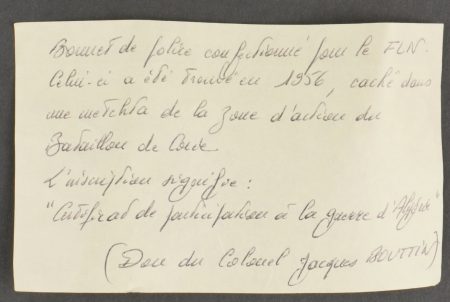 Bonnet de police confectionné pour le FLN.
Celui-ci a été trouvé en 1956, caché dans
une metchta de la zone d'action du
Bataillon de Corée
L'inscription signifie :
"Certificat de participation à la guerre d'Algérie"
(Don du Colonel Jacques BOUTTIN)